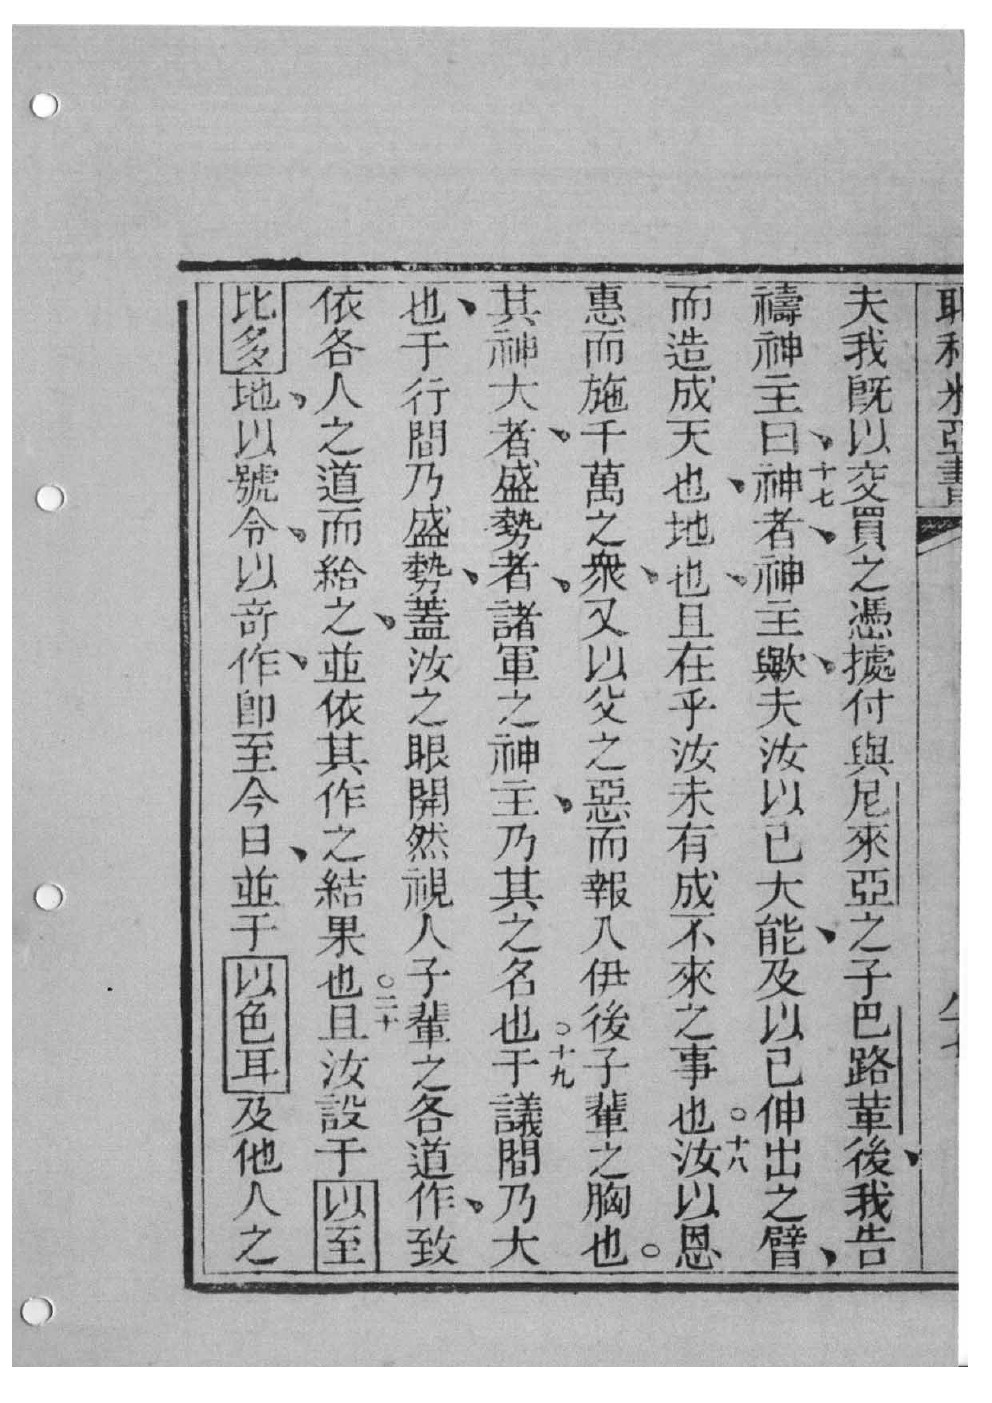 耶利米亞書
夫我既以交買之憑據付與尼來亞之子巴路革後、我告
禱神主曰、十七神者、神主歟、夫汝以已大能、及以已伸出之臂、
而造成天也、地也、且在乎汝未有成不來之事也○十八汝以恩
惠而施千萬之衆、又以父之惡而報入伊後子輩之胸也○
其神大者、盛勢者、諸軍之神主、乃其之名也○十九于議間乃大
也、于行間乃盛勢、蓋汝之眼開然視人子輩之各道作、致
依各人之道而給之、並依其作之結果也○二十且汝設于以至
比多地、以號令、以奇作、即至今日、並于以色耳及他人之